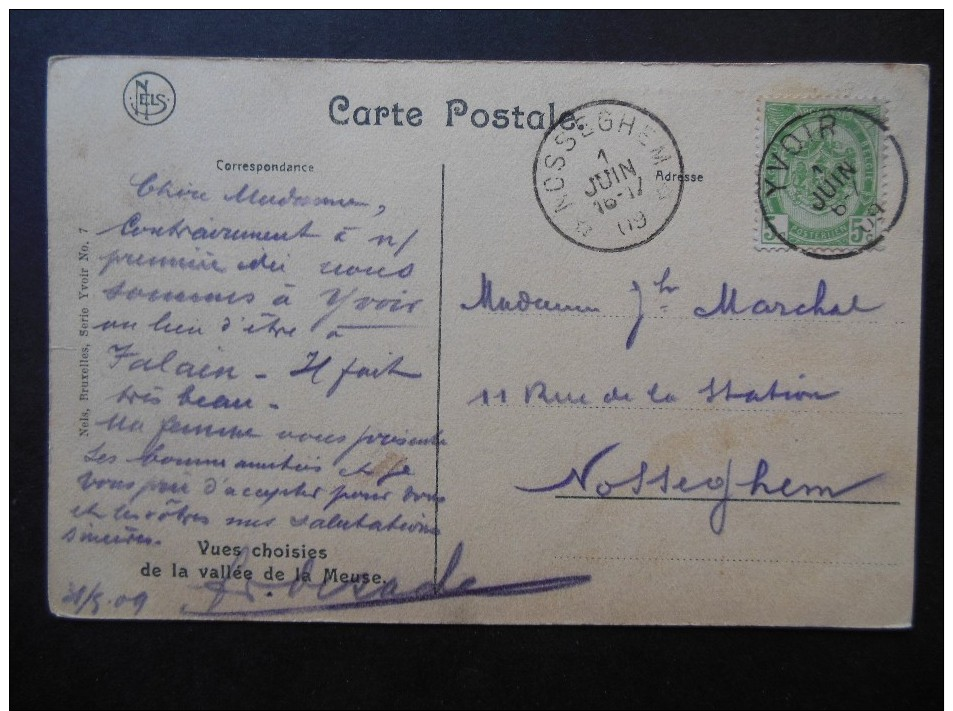 NELS
Carte Postale.
Correspondance
Adresse
NOSSEGHEM
1
JUIN
16-17
09
YVOIR
1
JUIN
6-
09
5
5
POSTERIJEN
Nels, Bruxelles, Serie Yvoir No. 7
Chère Madame,
Contrairement à n/
première idée nous
sommes à Yvoir
au lieu d'être à
Falaën - Il fait
très beau -
Ma femme vous présente
ses bonnes amitiés et je
vous prie d'accepter pour vous
et les vôtres mes salutations
sincères.
Vues choisies
de la vallée de la Meuse.
31/5.09
Madame Jh Marchal
11 Rue de la Station
Nosseghem